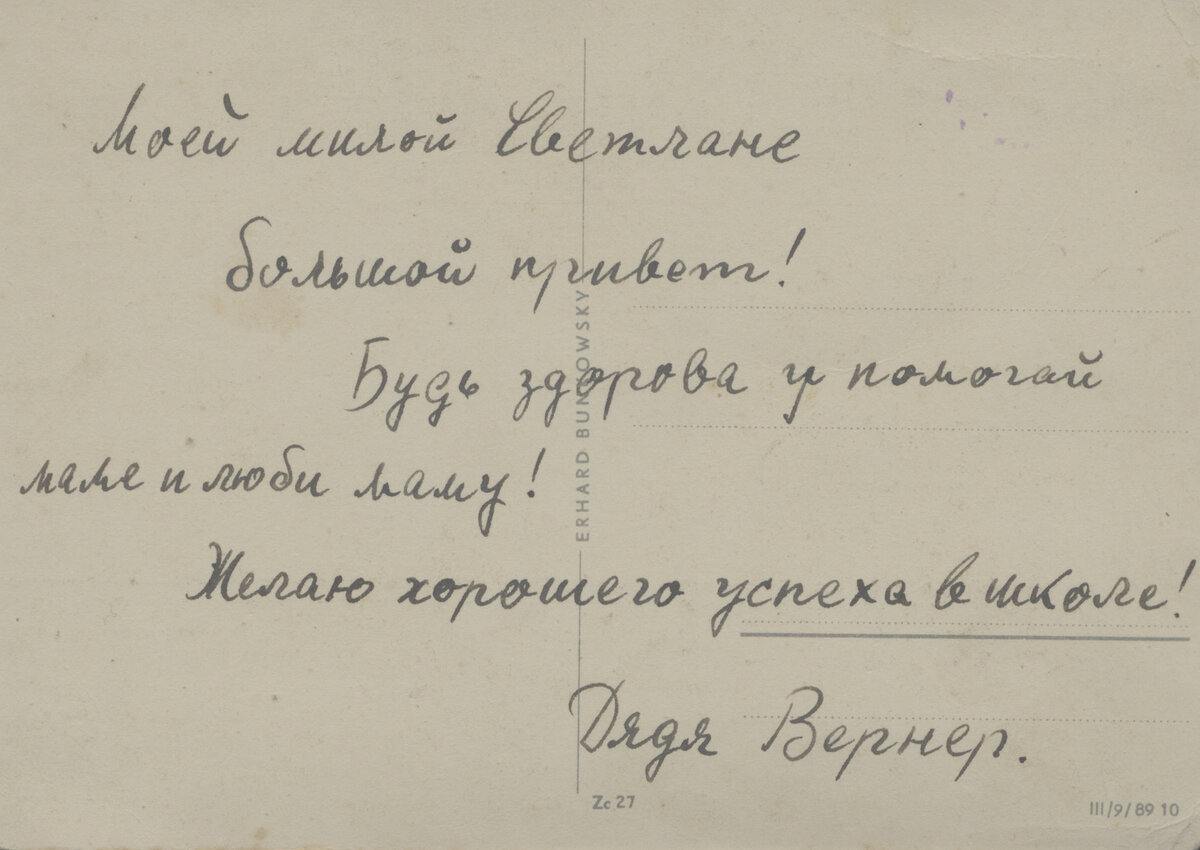 Моей милой Светлане
большой привет!
Будь здорова и помогай
маме и люби маму!
Желаю хорошего успеха в школе!
Дядя Вернер.
ERHARD BUNKOWSKY
Zc 27
III/9/89 10